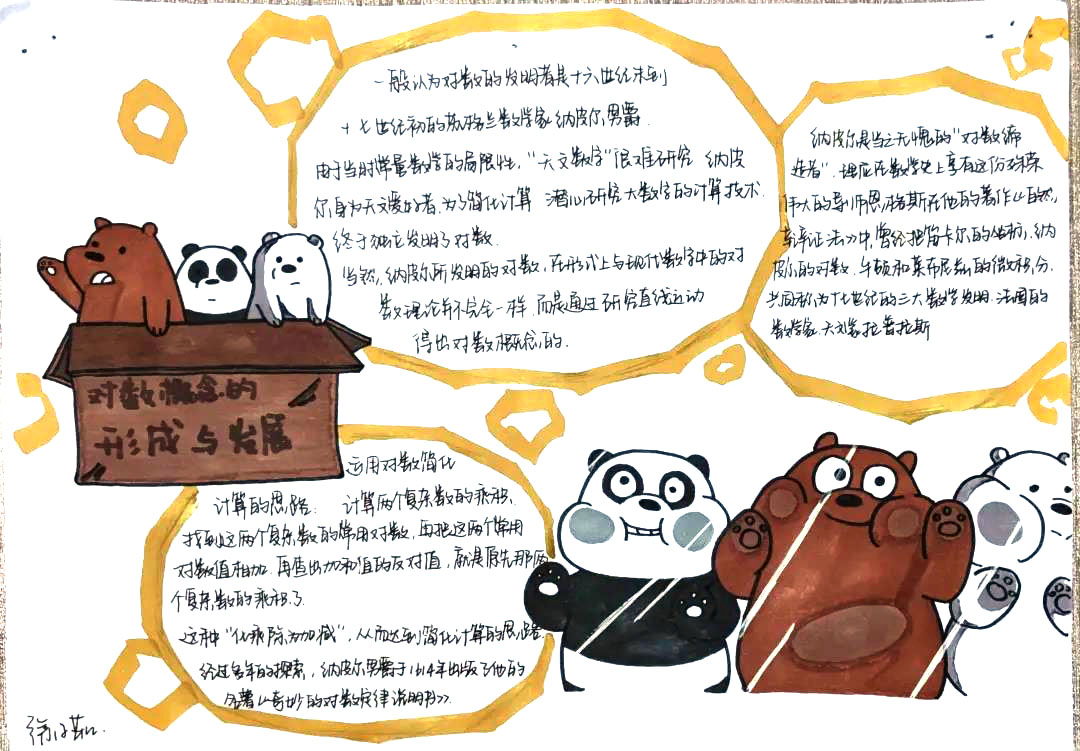 对数概念的
形成与发展
一般认为对数的发明者是十六世纪末到
十七世纪初的苏格兰数学家纳皮尔男爵.
由于当时常量数学的局限性,“天文数字”很难研究 纳皮
尔身为天文爱好者,为了简化计算 潜心研究大数字的计算技术.
终于独立发明了对数.
当然,纳皮尔所发明的对数,在形式上与现代数字中的对
数理论并不完全一样.而是通过研究直线运动
得出对数概念的.
纳皮尔是当之无愧的“对数缔
造者”.理应在数学史上享有这份殊荣
伟大的导师恩格斯在他的著作《自然
辩证法》中,曾经把笛卡尔的坐标,纳
皮尔的对数、牛顿和莱布尼兹的微积分.
共同称为十七世纪的三大数学发明.法国的
数学家.天文家拉普拉斯
运用对数简化
计算的思路: 计算两个复杂数的乘积.
找到这两个复杂数的常用对数,再把这两个常用
对数值相加.再查出加和值的反对值,就是原先那两
个复杂数的乘积了.
这种“化乘除为加减”,从而达到简化计算的思路.
经过多年的探索,纳皮尔男爵于1614年出版了他的
名著《奇妙的对数定律说明书》>.